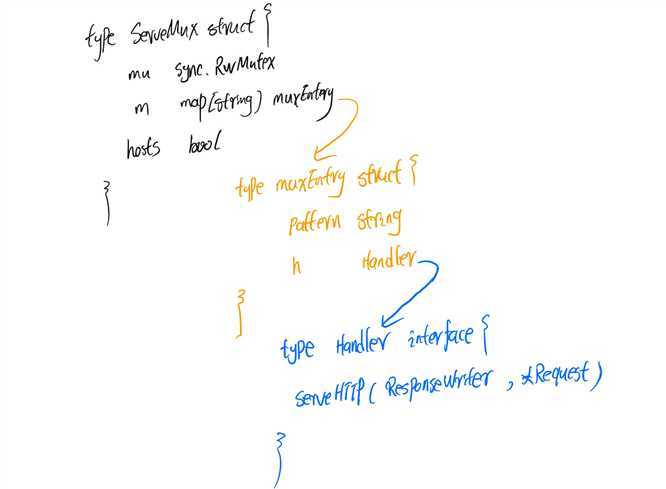 type ServeMux struct {
mu sync.RWMutex
m map[string] muxEntry
hosts bool
}
type muxEntry struct {
pattern string
h Handler
}
type Handler interface {
serveHTTP ( ResponseWriter , *Request )
}